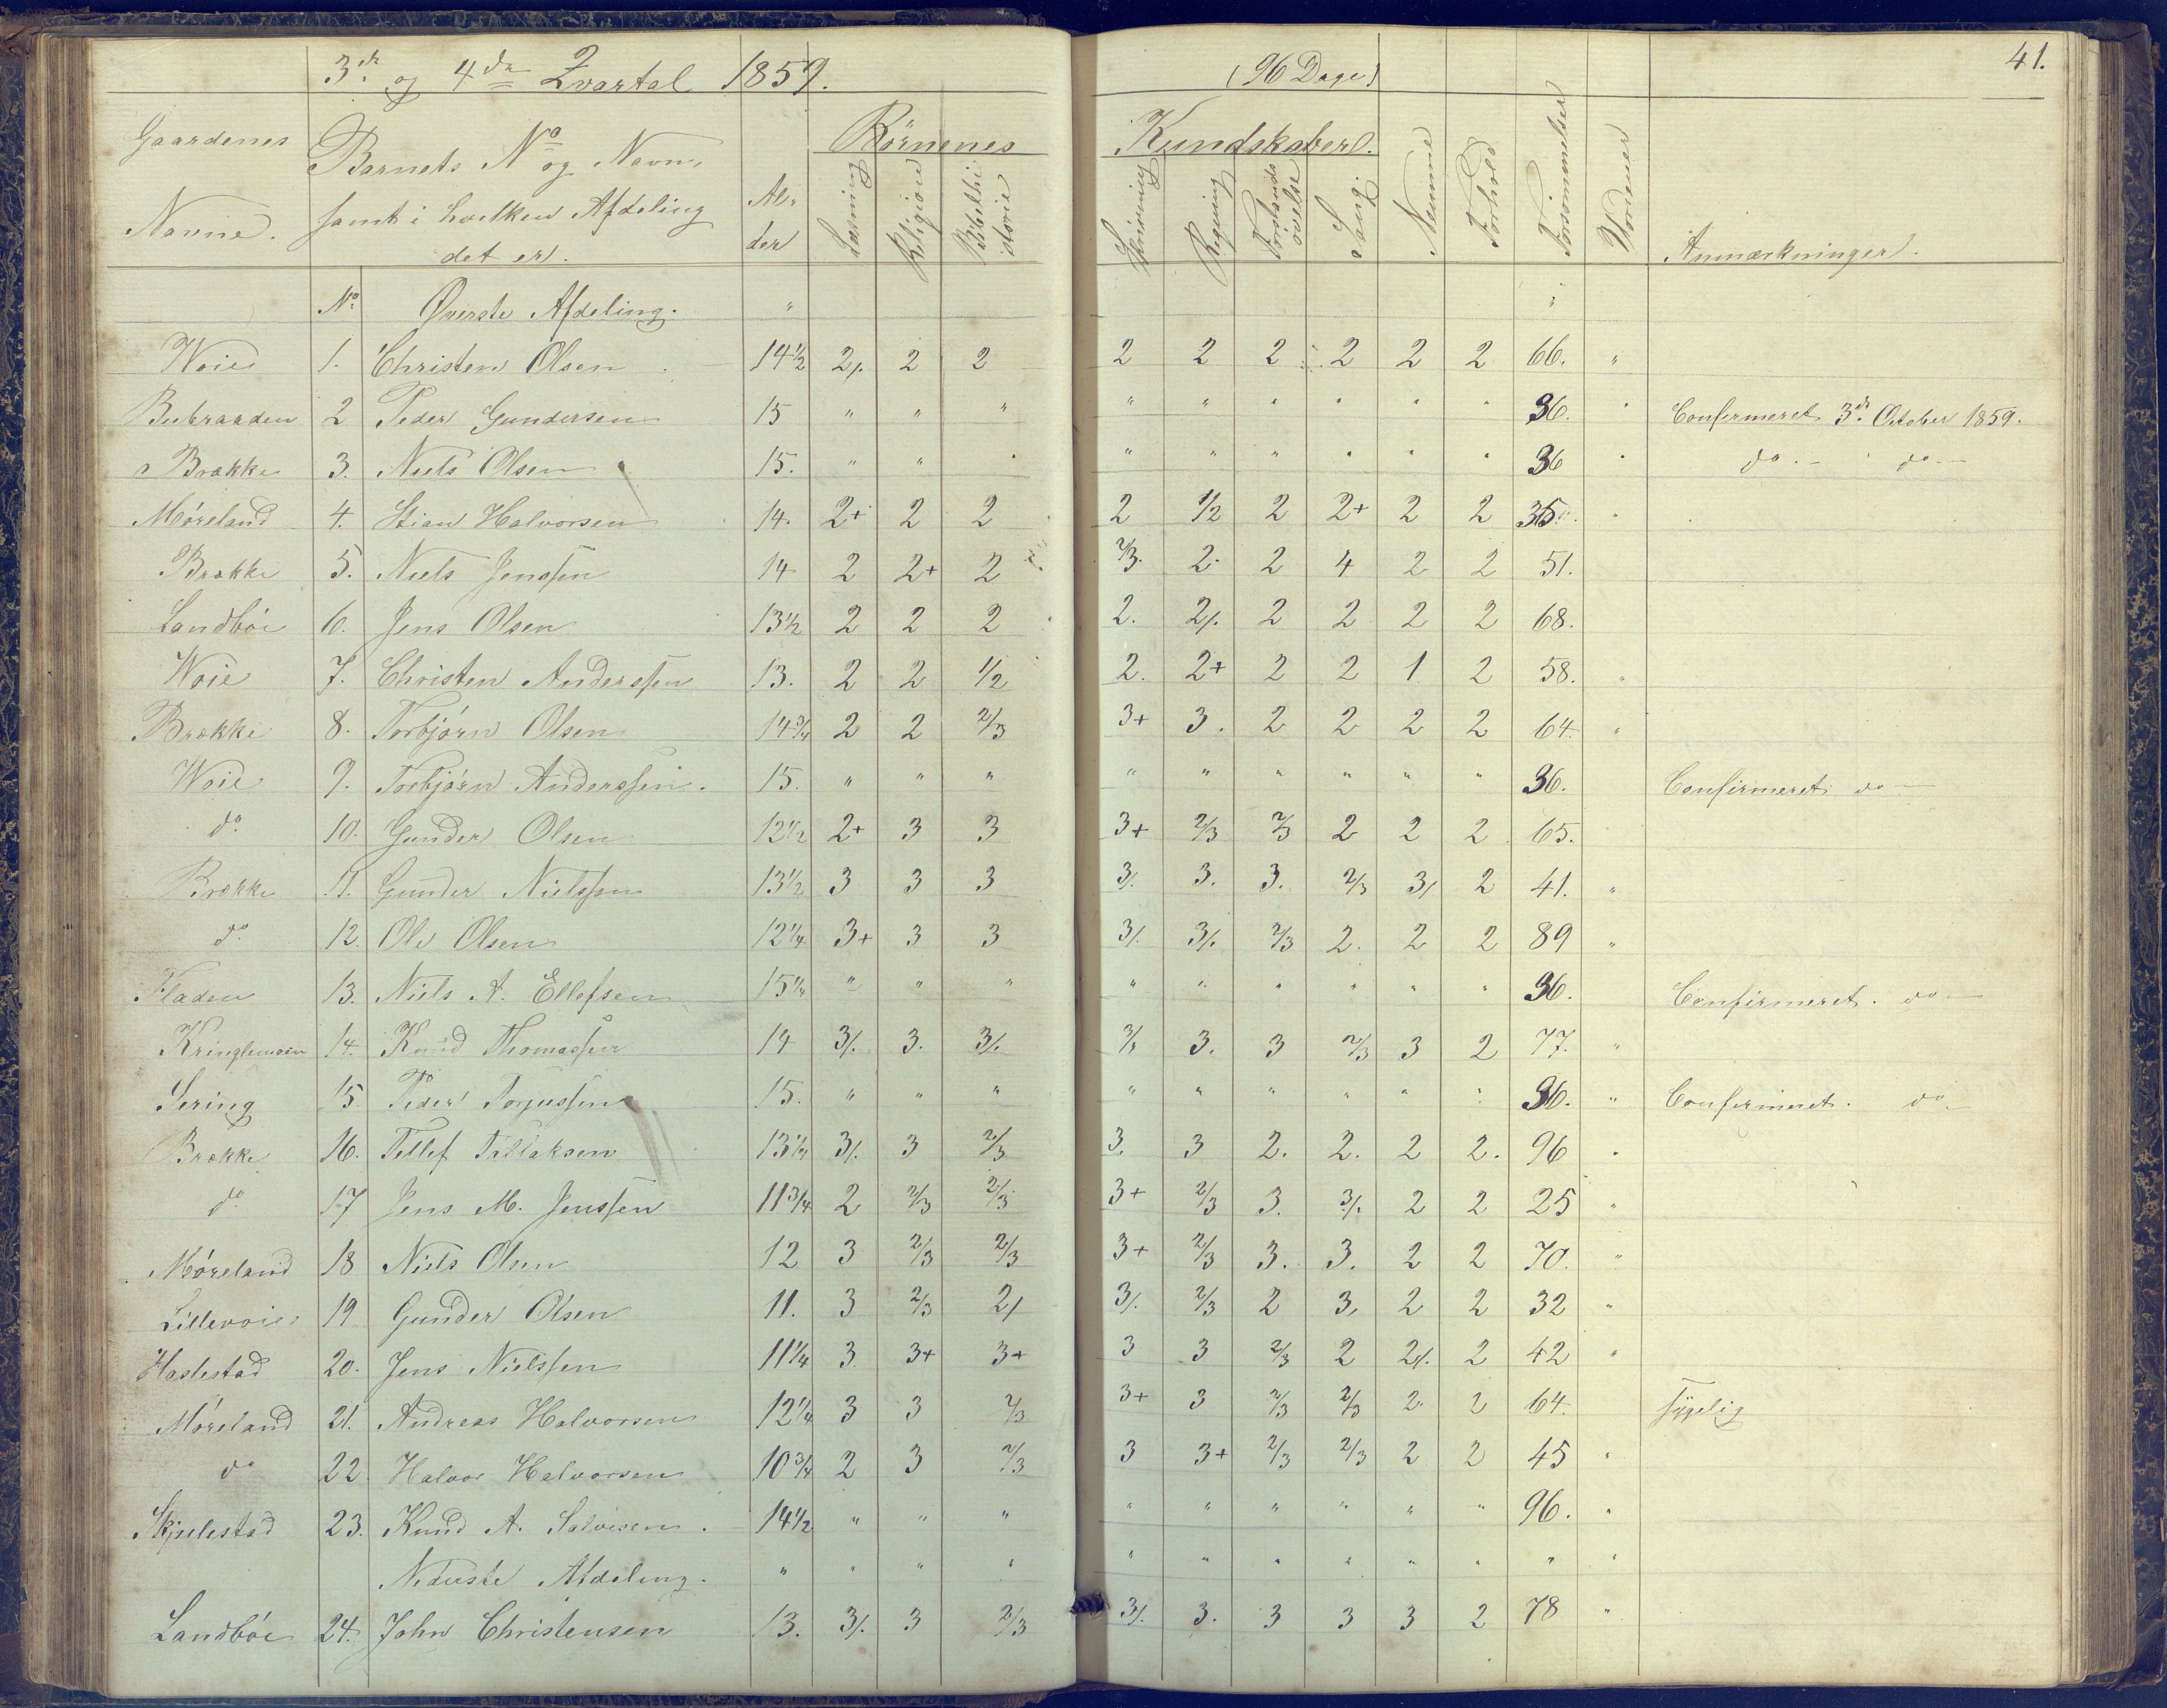 41.
3die og 4de Qvartal 1859. (96 Dage)
Gaardenes Navne. Barnets No og Navn, samt i hvilken Afdeling det er. Alder Børnenes Kundskaber.
Læsning Religion Bibelhistorie Skrivning Regning Forstands øvelse Sang Nemme Forhold Forsømmelser Anmærkninger.
No Øverste Afdeling. "
Woie 1. Christen Olsen 14½ 2/. 2 2 2 2 2 2 2 2 66. "
2 Peder Gundersen 15 " " " " " " " " " 36. " Confirmeret 3die October 1859.
Brække 3. Niels Olsen 15. " " " " " " " " " 36 " do. - do -
Møreland 4. Stian Halvorsen 14. 2+ 2 2 2 1/2 2 2+ 2 2 35. "
Brække 5. Niels Jenssen 14 2 2+ 2 2/3. 2 2 4 2 2 51.
Landbøe 6. Jens Olsen 13½ 2 2 2 2. 2/. 2 2 2 2 68.
Woie 7. Christen Anderssen 13. 2 2 1/2 2. 2+ 2 2 1 2 58. "
Brække 8. Torbjørn Olsen 14¾ 2 2 2/3 3+ 3. 2 2 2 2 64. "
Woie 9. Torbjørn Anderssen. 15. " " " " " " " " " 36. Confirmeret do -
do 10. Gunder Olsen 12½ 2+ 3 3 3+ 2/3 2/3 2 2 2 65.
Brække 11. Gunder Nielssen 13½ 3 3 3 3/. 3. 3. 2/3 3/ 2 41. "
do 12. Ole Olsen 12¼ 3+ 3 3 3/. 3/. 2/3 2. 2 2 89 "
Fladen 13. Niels A. Ellefsen 15¼ " " " " " " " " " 36. Confirmeret. do -
Kringlemoen 14. Knud Thomassen 14 3/. 3. 3/. 3/. 3. 3 2/3 3 2 77. "
Sering 15 Peder Torjussen 15. " " " " " " " " " 36. " Confirmeret. do -
Brække 16. Tellef Tallaksen 13¼ 3/. 3 2/3 3. 3 2. 2. 2 2. 96 "
do 17 Jens M. Jenssen 11¾ 2 2/3 2/3 3+ 2/3 3. 3/. 2 2 25 "
Møreland 18 Niels Olsen 12 3 2/3 2/3 3+ 2/3 3. 3. 2 2 70. "
Lillevoie 19 Gunder Olsen 11. 3 2/3 2/ 3/. 2/3 2 3, 2 2 32 "
Haslestad 20. Jens Nielssen 11¼ 3. 3+ 3+ 3 3 2/3 2 2/. 2 42 "
Møreland 21. Andreas Halvorsen 12¼ 3 3 2/3 3+ 3 2/3 2/3 2. 2 64. Sygelig
do 22. Halvor Halvorsen 10¾ 2 3 2/3 3 3+ 2/3 2/3 2 2 45 "
Skjulestad 23. Knud A. Salvesen. 14½ " " " " " " " " " 96. "
Nederste Afdeling. " " " " " " " " " " " "
Landbøe 24. John Christensen 13. 3/. 3 2/3 3/. 3. 3 3 3 2 78 "